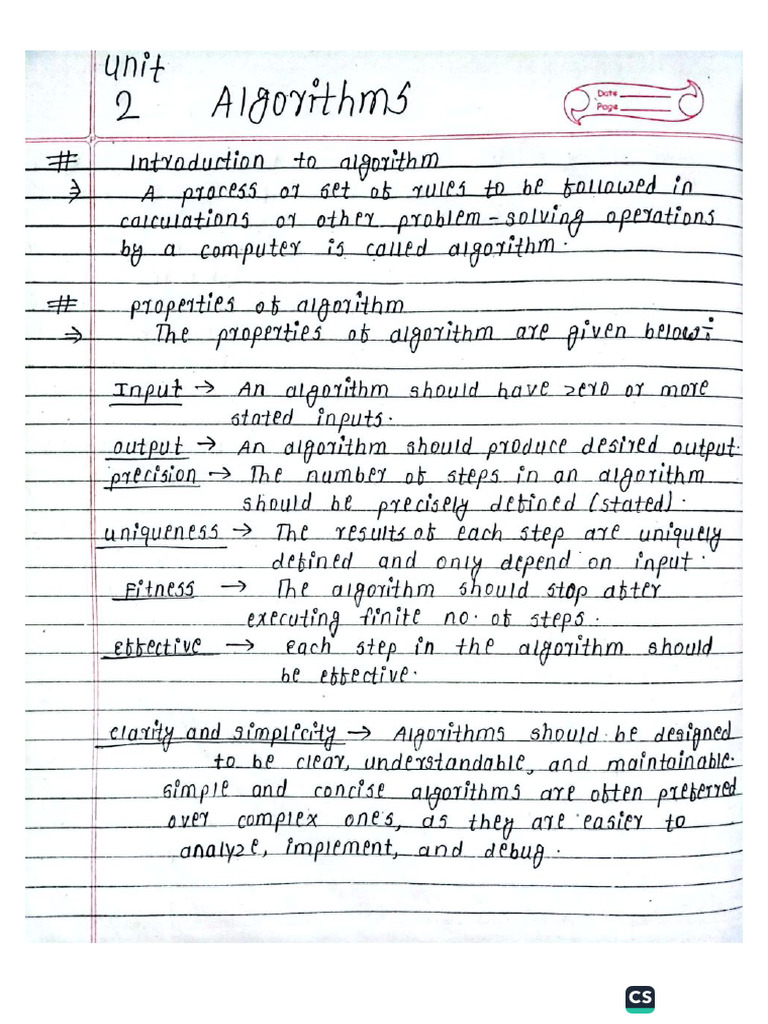 Unit
2 Algorithms
Date
Page
# Introduction to algorithm
⇒ A process or set of rules to be followed in
calculations or other problem-solving operations
by a computer is called algorithm.
# properties of algorithm
⇒ The properties of algorithm are given below:
Input → An algorithm should have zero or more
stated inputs.
output → An algorithm should produce desired output.
precision → The number of steps in an algorithm
should be precisely defined (stated).
uniqueness → The results of each step are uniquely
defined and only depend on input.
Fitness → The algorithm should stop after
executing finite no. of steps.
effective → each step in the algorithm should
be effective.
clarity and simplicity → Algorithms should be designed
to be clear, understandable, and maintainable.
simple and concise algorithms are often preferred
over complex one's, as they are easier to
analyze, implement, and debug.
CS